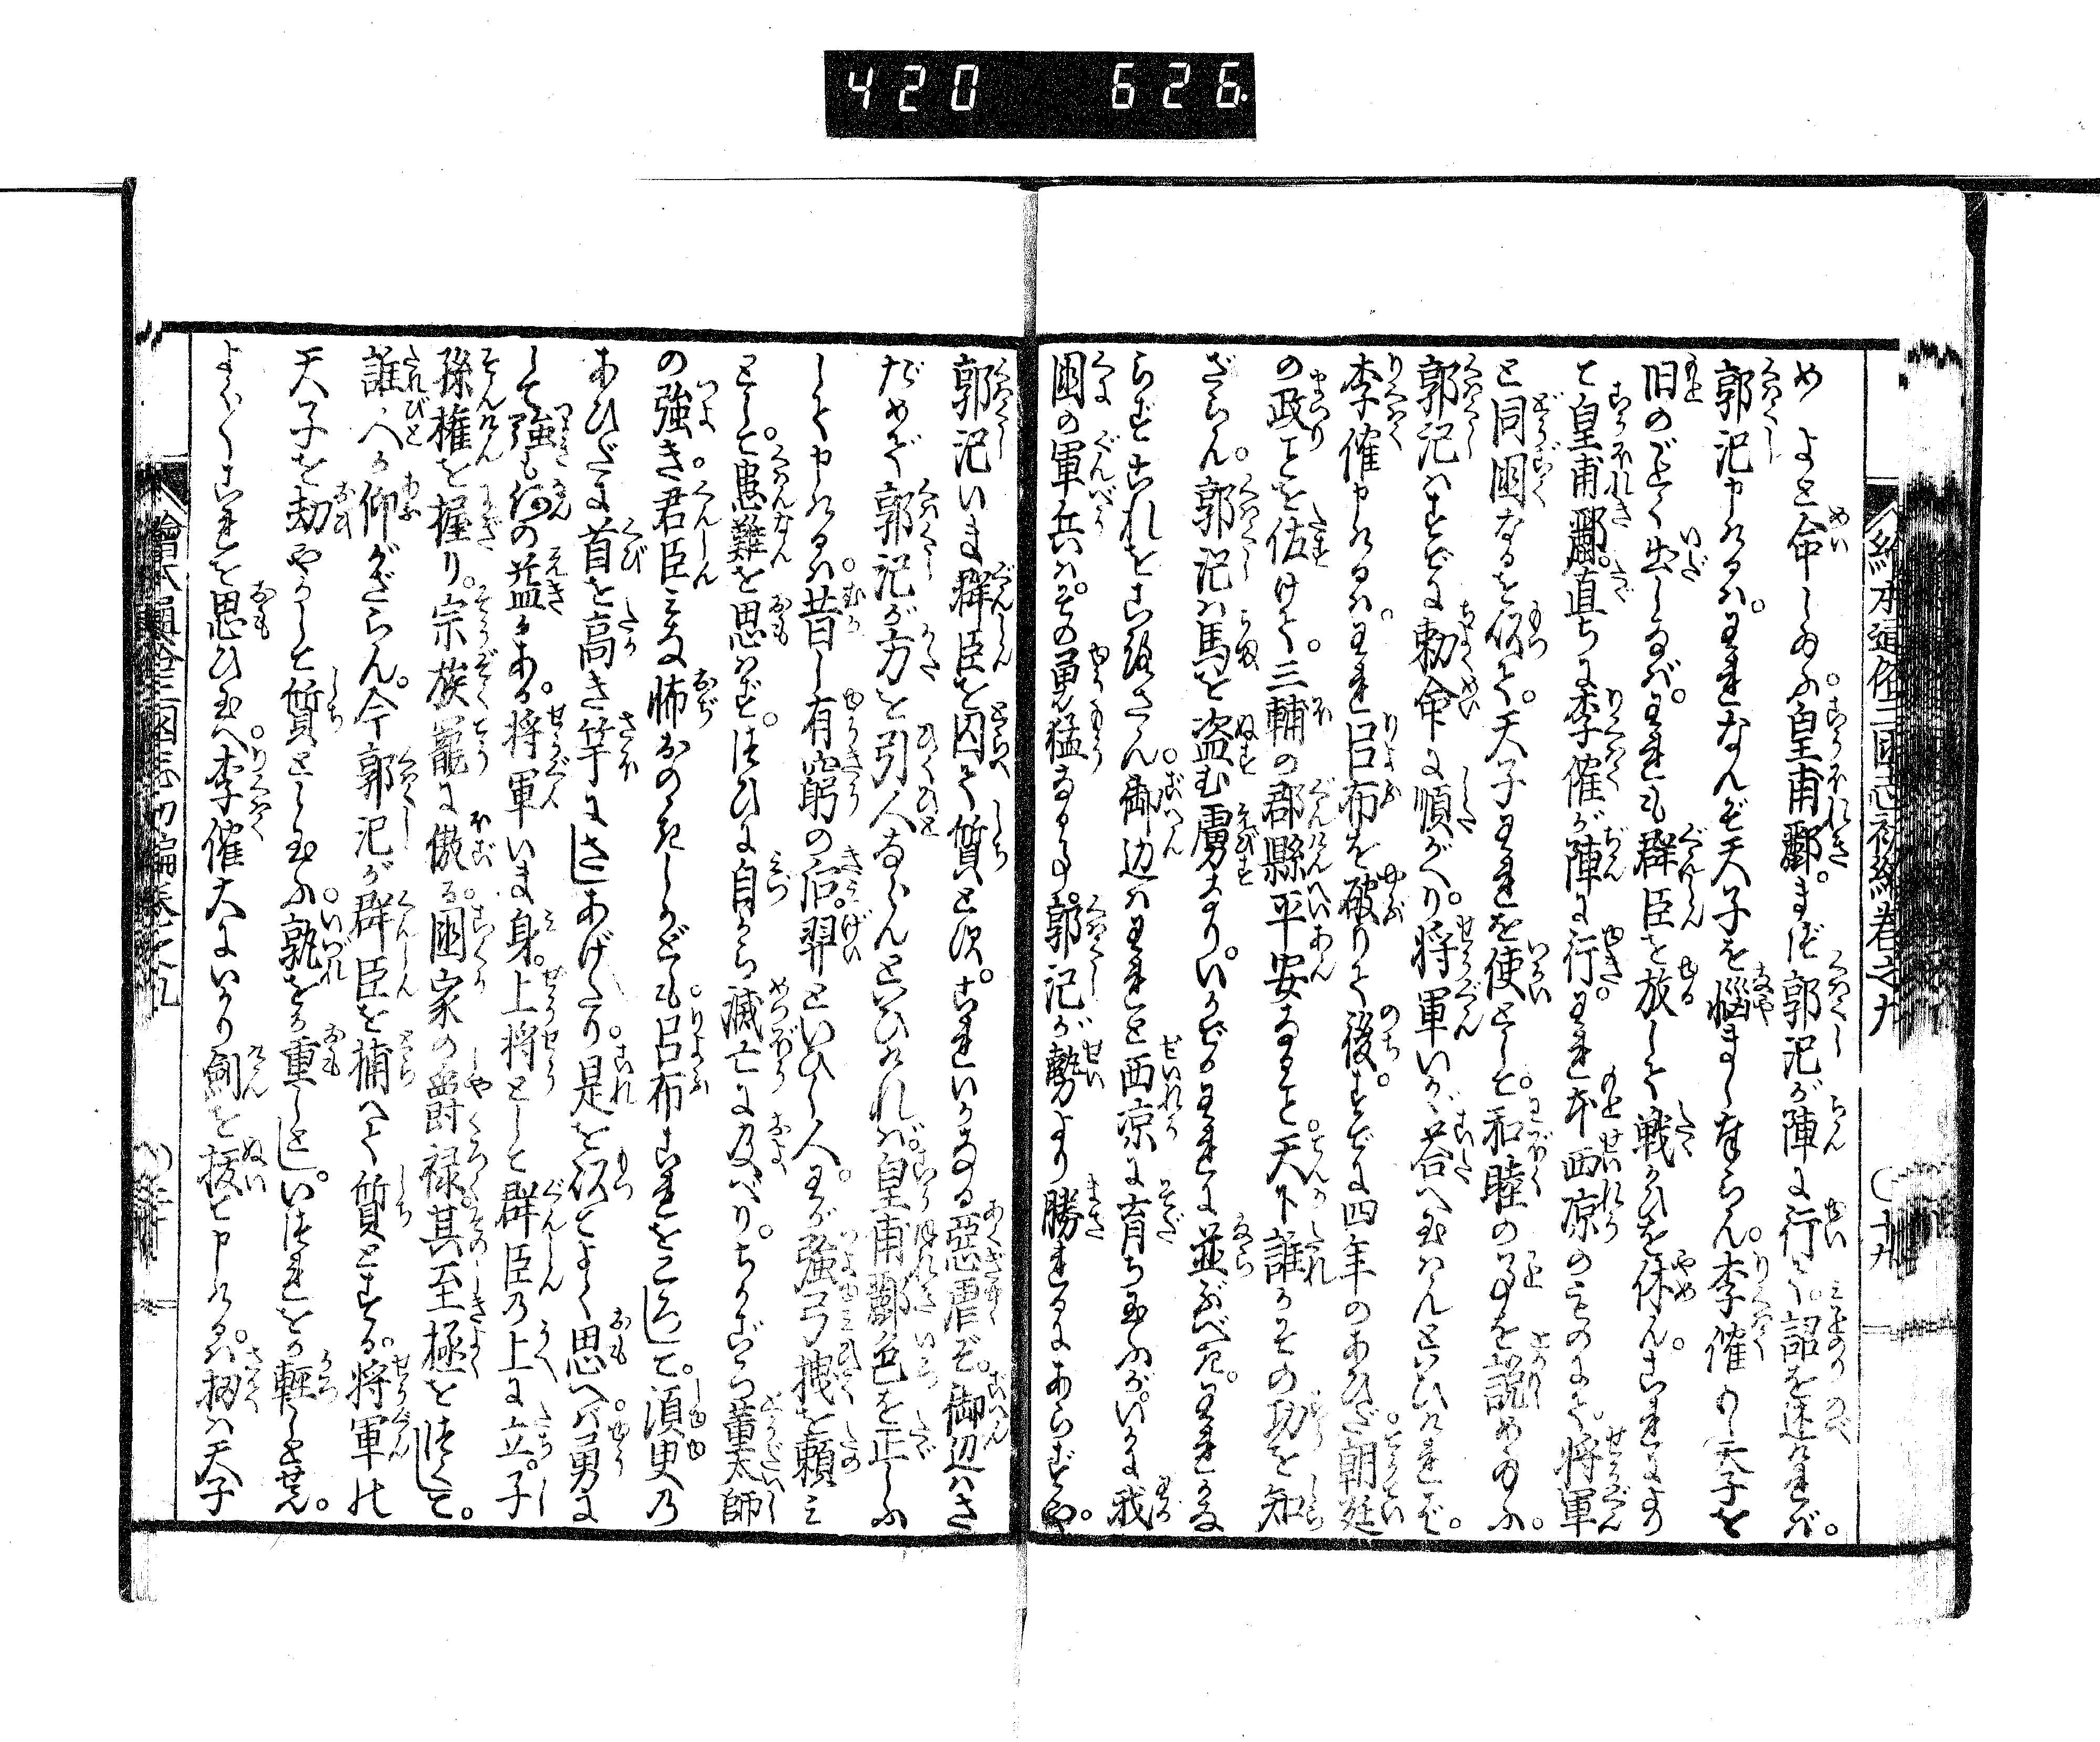 420 626
絵本通俗三国志初編巻之九 〇十九
めよと命し給ふ皇甫酈まづ郭汜が陣に行て。詔を述ければ。
郭汜申けるハ。われなんぞ天子を悩まし奉らん。李傕もし天子を
旧のごとく出しなバ。われも群臣を放して戦ひを休ん。これによつ
て皇甫酈。直ちに李傕が陣に行き。われ本西涼のものにて。将軍
と同国なるを以て。天子われを使として。和睦の事を説め給ふ。
郭汜ハすでに勅命に順がへり。将軍いかゞ答へ玉ハんといひけれバ。
李傕申けるハ。われ呂布を破りて後。すでに四年のあひだ朝廷
の政ごとを佐けて。三輔の郡縣平安なること。天下誰かその功を知
ざらん。郭汜ハ馬を盗む虜なり。いかでかわれに並ぶべき。われかな
らずこれをころさん。御辺ハわれと西涼に育ち玉ふが。いかに我
国の軍兵ハ。その勇猛なる事。郭汜が勢より勝れるにあらずや。
郭汜いま群臣を囚て質とす。これいかなる悪虐ぞ。御辺ハさ
だめて郭汜が方を引人ならんといひけれバ。皇甫酈色を正しふ
して申けるハ。昔し有窮の后羿といひし人。わが強弓の技を頼ミ
として。患難を思ハず。つひに自から滅亡に及べり。ちかごろ董太師
の強き。君臣ミな怖おのゝきしかども。呂布これをころして。須臾の
あひだに首を高き竿にさしあげたり是を以てよく思へバ勇に
して強も何の益かある。将軍いま身。上将として群臣の上に立。子
孫権を握り。宗族寵に傲る。国家の爵禄其至極をつくして。
誰人か仰がざらん。今郭汜が群臣を捕へて質とする。将軍の
天子を劫やかして質とし玉ふ。孰をか重しとし。いづれをか輕しとせん。
よろしくこれを思ひ玉へ。李傕大にいかり劍を抜て申けるハ。扨ハ天子
絵本通俗三国志初編巻之九